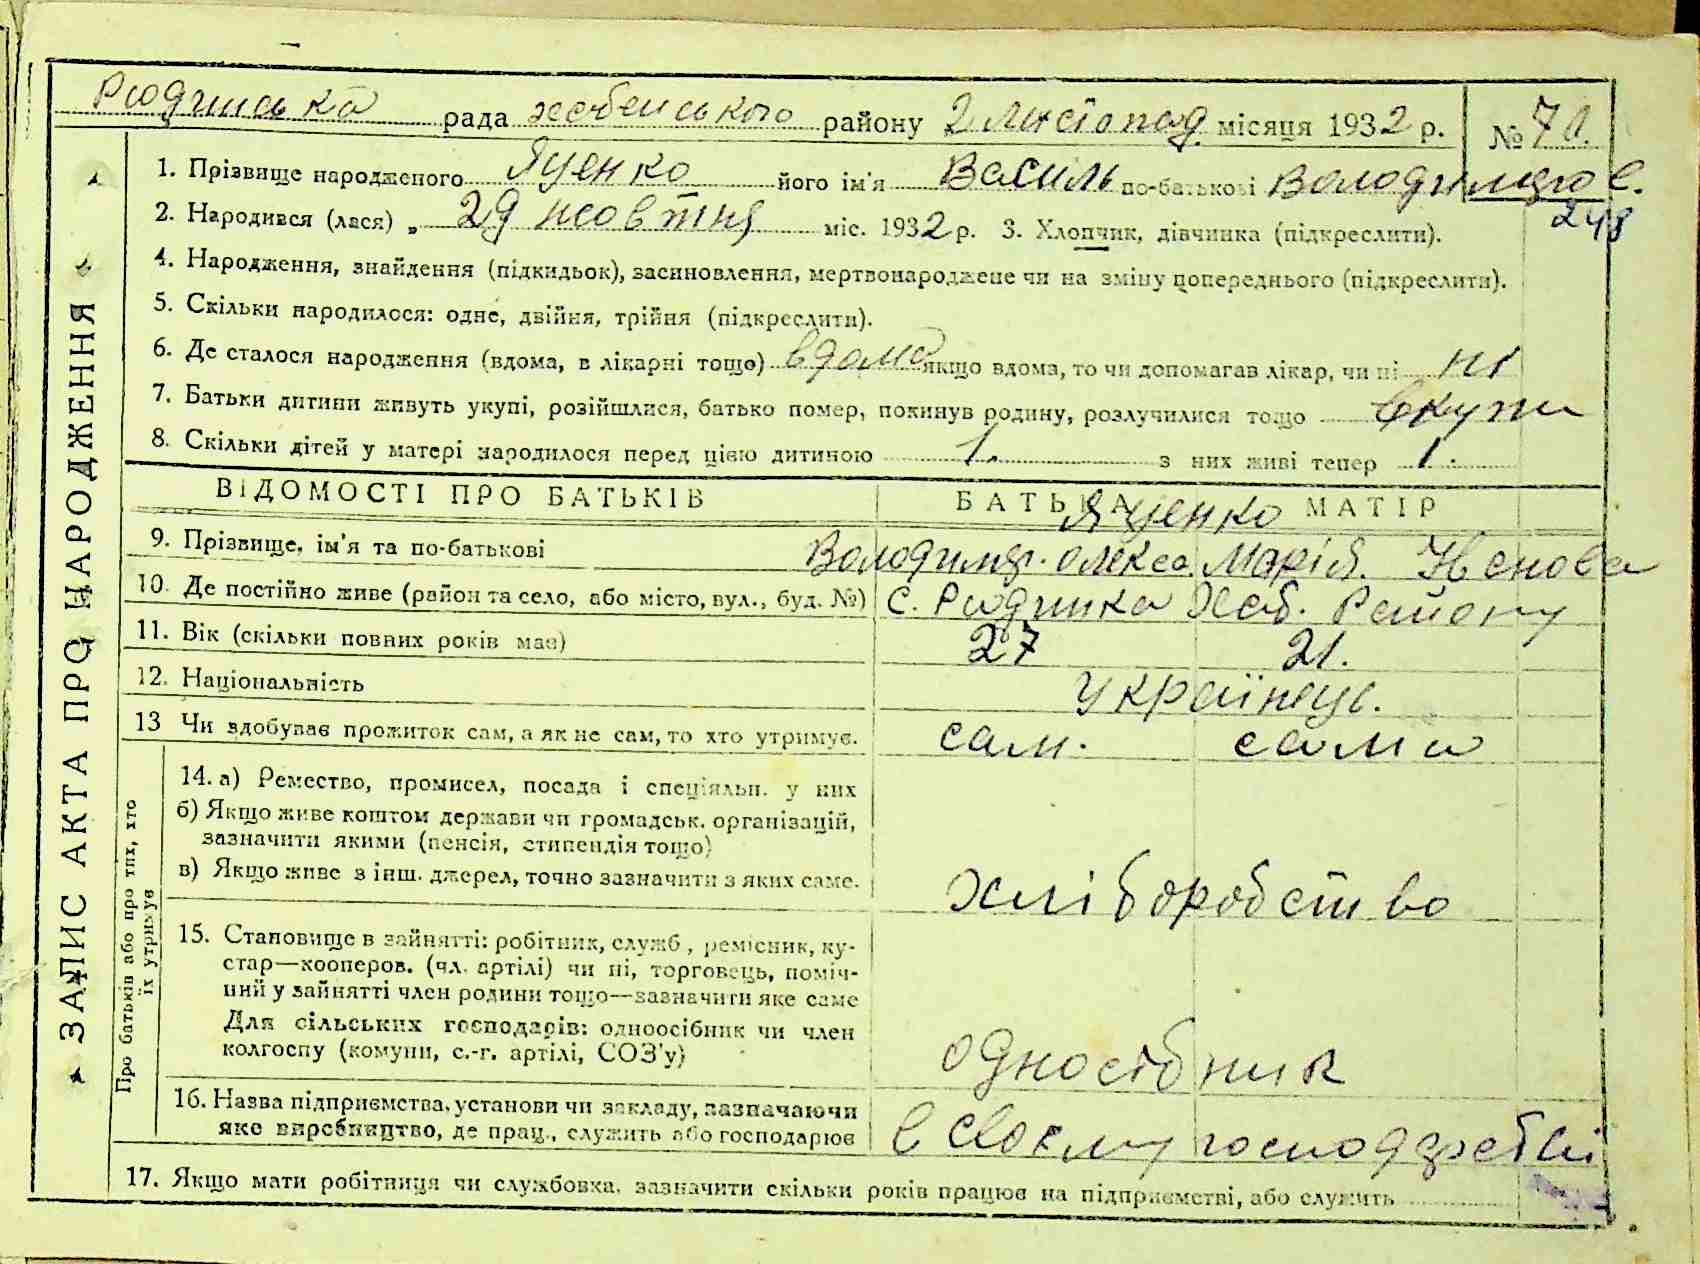 Рудинська рада хабенського району 2 листопад. місяця 1932 р. № 70.
1. Прізвище народженого Яценко його ім'я Василь по-батькові Володимиров.
248
2. Народився (лася) „ 29 жовтня міс. 1932 р. 3. Хлопчик, дівчинка (підкреслити).
4. Народження, знайдення (підкидьок), засиновлення, мертвонароджене чи на зміну попереднього (підкреслити).
5. Скільки народилося: одне, двійня, трійня (підкреслити).
6. Де сталося народження (вдома, в лікарні тощо) вдома якщо вдома, то чи допомагав лікар, чи ні ні
7. Батьки дитини живуть укупі, розійшлися, батько помер, покинув родину, розлучилися тощо вкупи
8. Скільки дітей у матері народилося перед цією дитиною 1. з них живі тепер 1.
ВІДОМОСТІ ПРО БАТЬКІВ БАТЬКА МАТІР
Яценко
9. Прізвище, ім'я та по-батькові Володимир. олекса. Марія. Іванова
10. Де постійно живе (район та село, або місто, вул., буд. №) с. Рудинка Хаб. Району
11. Вік (скільки повних років має) 27 21.
12. Національність Українець.
13 Чи здобуває прожиток сам, а як не сам, то хто утримує. сам. сама
14. а) Ремество, промисел, посада і спеціяльн. у них
б) Якщо живе коштом держави чи громадськ. організацій,
зазначити якими (пенсія, стипендія тощо)
в) Якщо живе з інш. джерел, точно зазначити з яких саме. хліборобство
15. Становище в зайнятті: робітник, служб., ремісник, ку-
стар—кооперов. (чл. артілі) чи ні, торговець, поміч-
ний у зайнятті член родини тощо—зазначити яке саме
Для сільських господарів: одноосібник чи член
колгоспу (комуни, с.-г. артілі, СОЗ'у) односібник
16. Назва підприємства, установи чи закладу, зазначаючи
яке виробництво, де прац., служить або господарює в своєму господарстві
17. Якщо мати робітниця чи службовка, зазначити скільки років працює на підприємстві, або служить
ЗАПИС АКТА ПРО НАРОДЖЕННЯ
Про батьків або про тих, хто
їх утримує